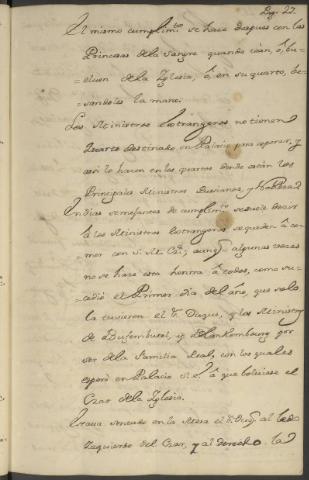 Pag. 27.
El mismo cumplimto. se hace despues con las
Princesas de la Sangre quando vàn, ò, bu-
=elven de la Iglesia, ò, en su quarto, be-
sandoles la mano.
Los Ministros Estrangeros no tienen
Quarto destinado en Palacio para esperar, y
asi lo hacen en los quartos donde están los
Principales Ministros Rusianos, y
En dias semejantes de cumplimto. se decir
à los Ministros Estrangeros se queden à co-
mer con S. M. Cza., aunq. algunas veces
no se hace esta honrra à todos, como su-
=cedió el Primer dia del año, que solo
la tuvieron el Sr. Duque, y los Ministros
de y Blankemburg por
ser de la Familia Real, con los quales
esperó en Palacio S. E. à que bolviese el
Czar de la Iglesia.
Estava sentado en la Mesa el Sr. Duq. al lado
Izquierdo del Czar, y al derecho la